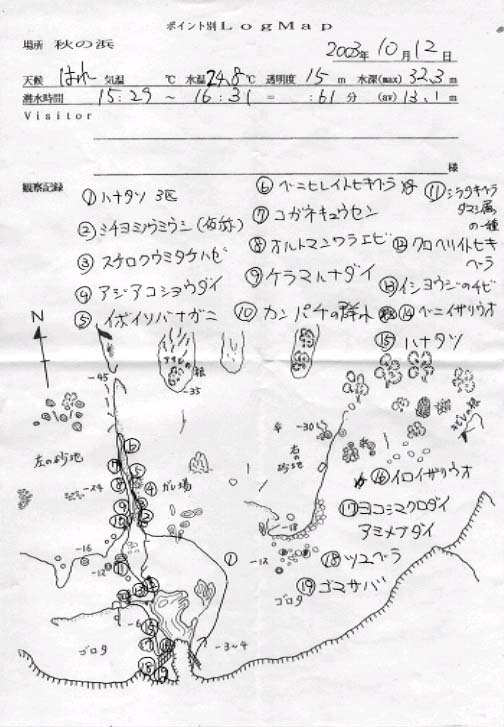 ポイント別 LogMap
場所 秋の浜 2003年 10月 12日
天候 はれ 気温 ℃ 水温 24.8℃ 透明度 15 m 水深(max) 32.3 m
潜水時間 15:29 ～ 16:31 = :61分 (av) 13.1 m
Visitor
様
観察記録
①ハナタツ 3匹
②ミチヨミノウミウシ(仮称)
③スケロクウミタケハゼ
④アジアコショウダイ
⑤イボイソバナガニ
⑥ベニヒレイトヒキベラ
⑦コガネキュウセン
⑧オルトマンワラエビ
⑨ケラマハナダイ
⑩カンパチの群れ
⑪シラタキベラ
ダマシ属
の一種
⑫クロヘリイトヒキ
ベラ
⑬イショウジのチビ
⑭ベニイザリウオ
⑮ハナタツ
N
-45
-35
の根
左の砂地
-24
⑥
⑤
④ ガレ場
右の
砂地
-30
-18
-16
-12
①
-12
ゴロタ
-6
-3~4
ゴロタ
⑯イロイザリウオ
⑰ヨコシマクロダイ
アミメナダイ
⑱ツユベラ
⑲ゴマサバ